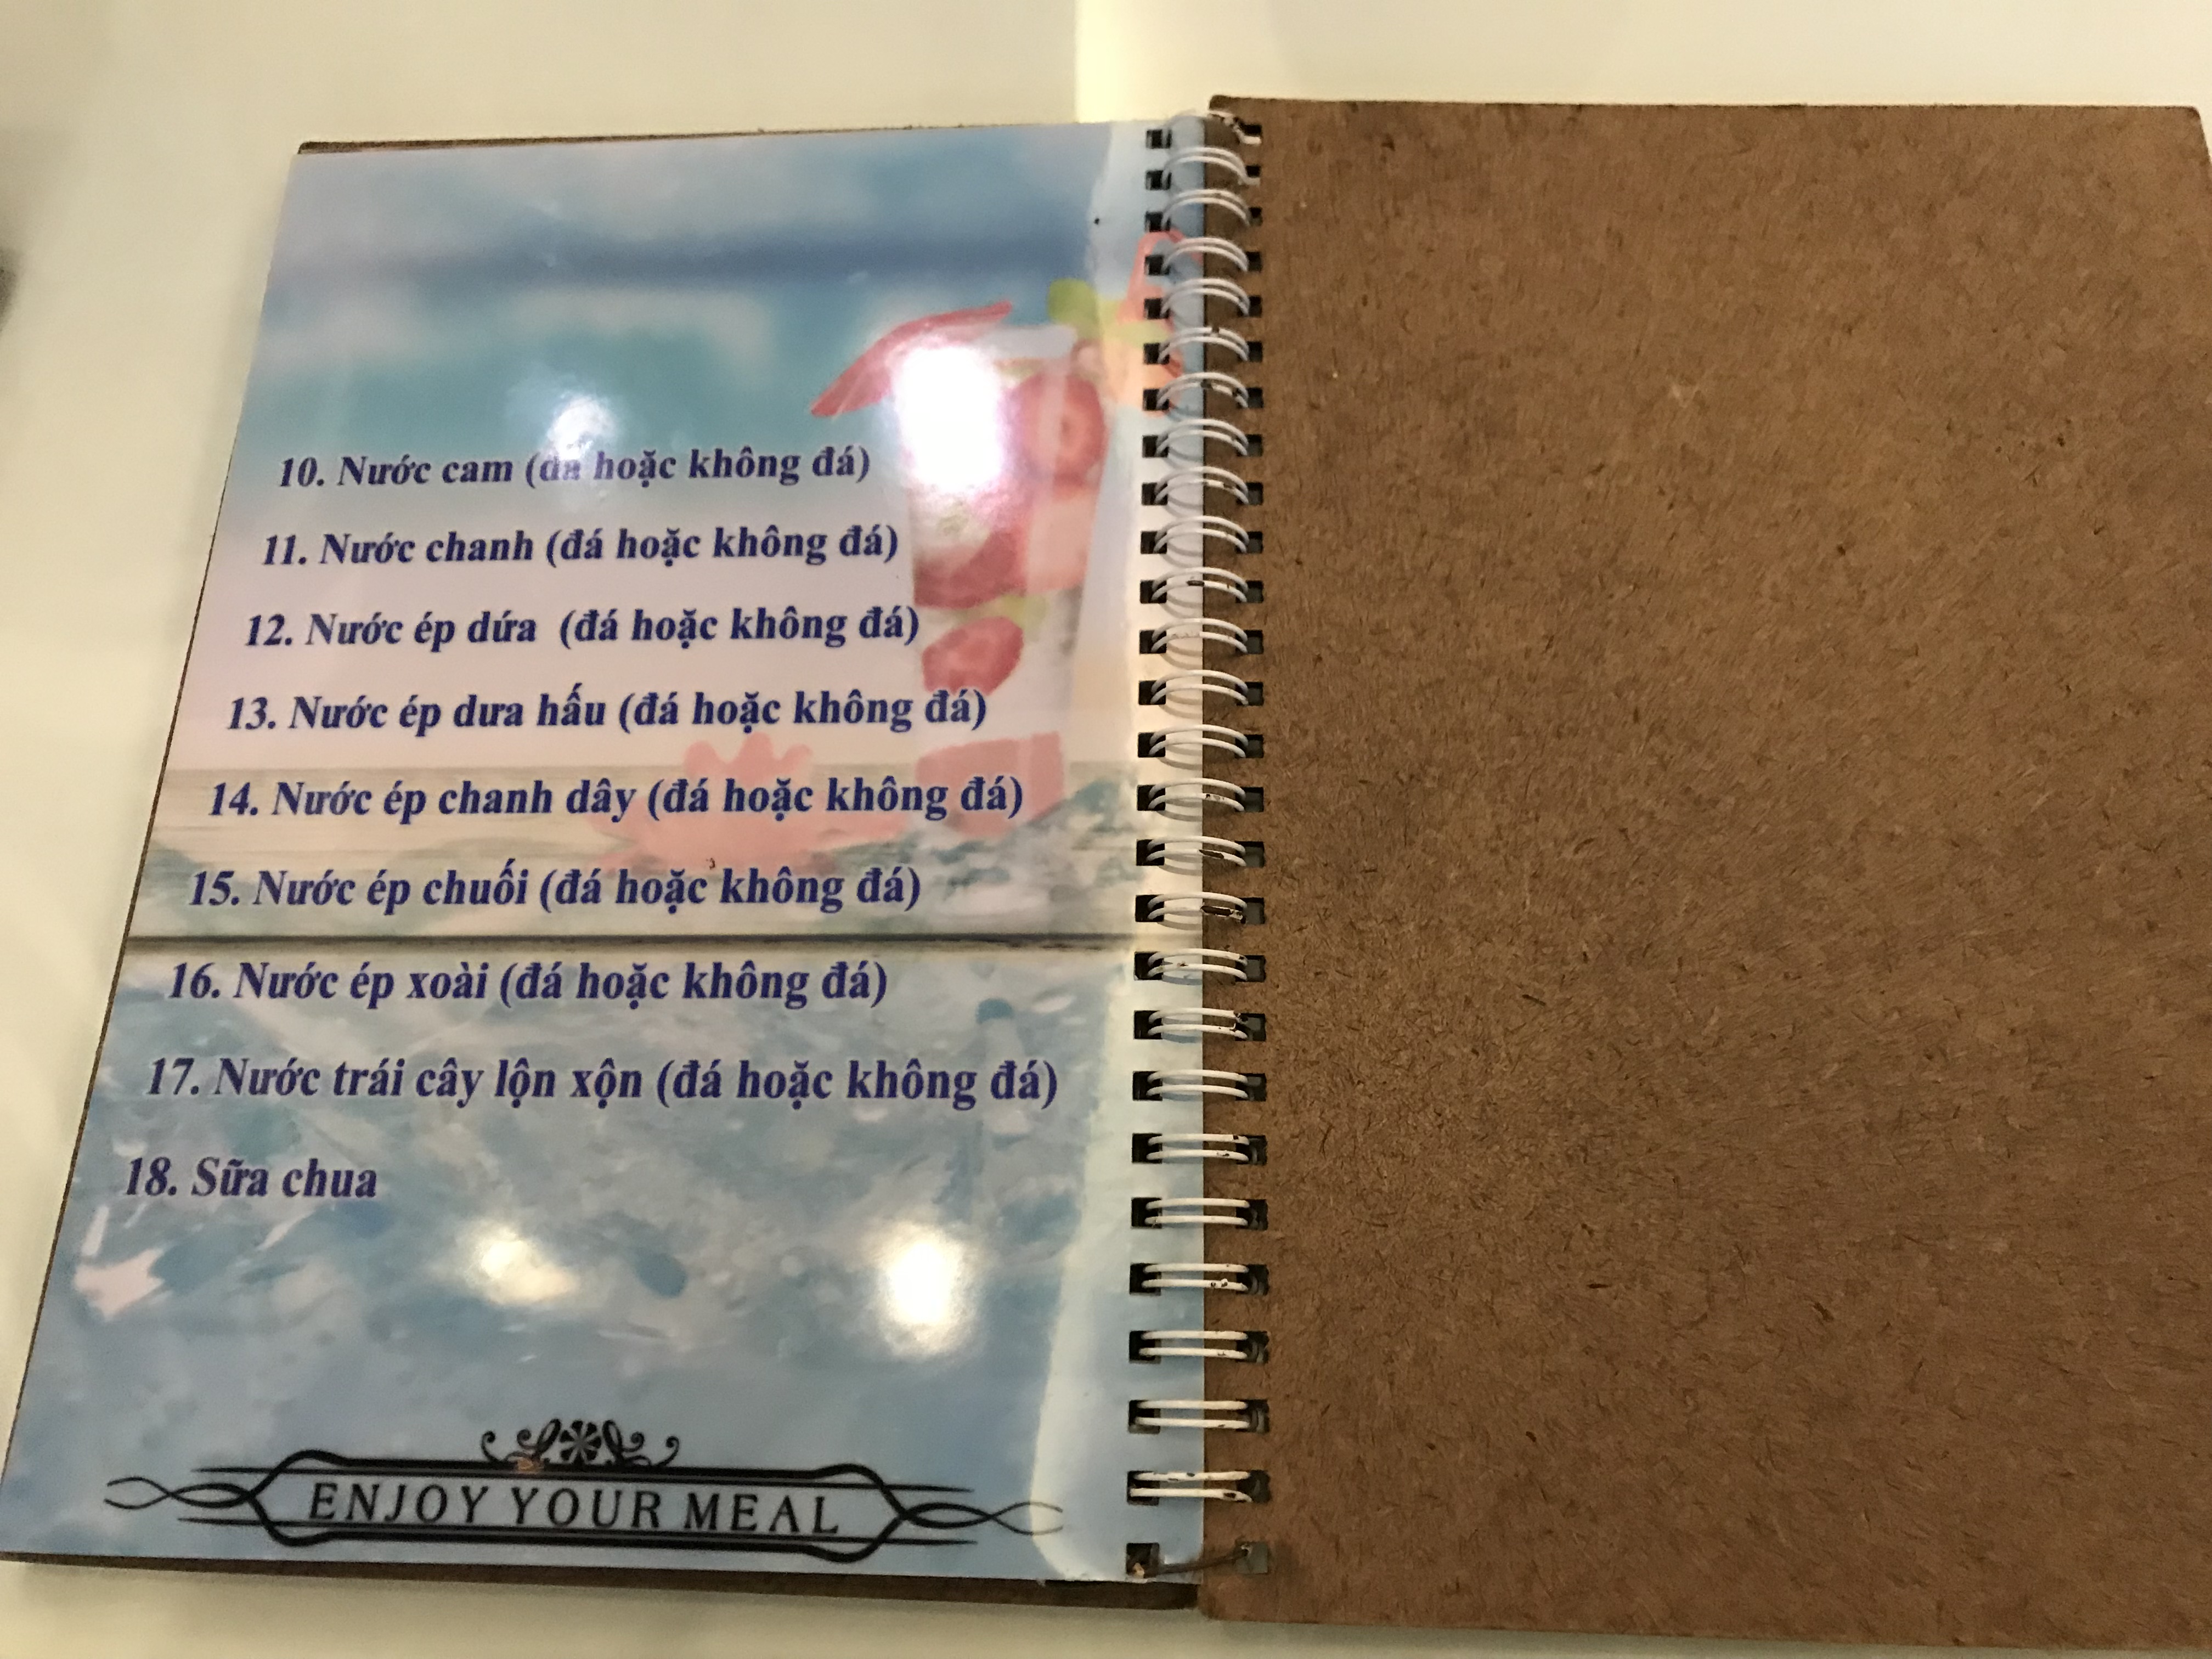 10. Nước cam (đá hoặc không đá)
11. Nước chanh (đá hoặc không đá)
12. Nước ép dứa (đá hoặc không đá)
13. Nước ép dưa hấu (đá hoặc không đá)
14. Nước ép chanh dây (đá hoặc không đá)
15. Nước ép chuối (đá hoặc không đá)
16. Nước ép xoài (đá hoặc không đá)
17. Nước trái cây lộn xộn (đá hoặc không đá)
18. Sữa chua
ENJOY YOUR MEAL